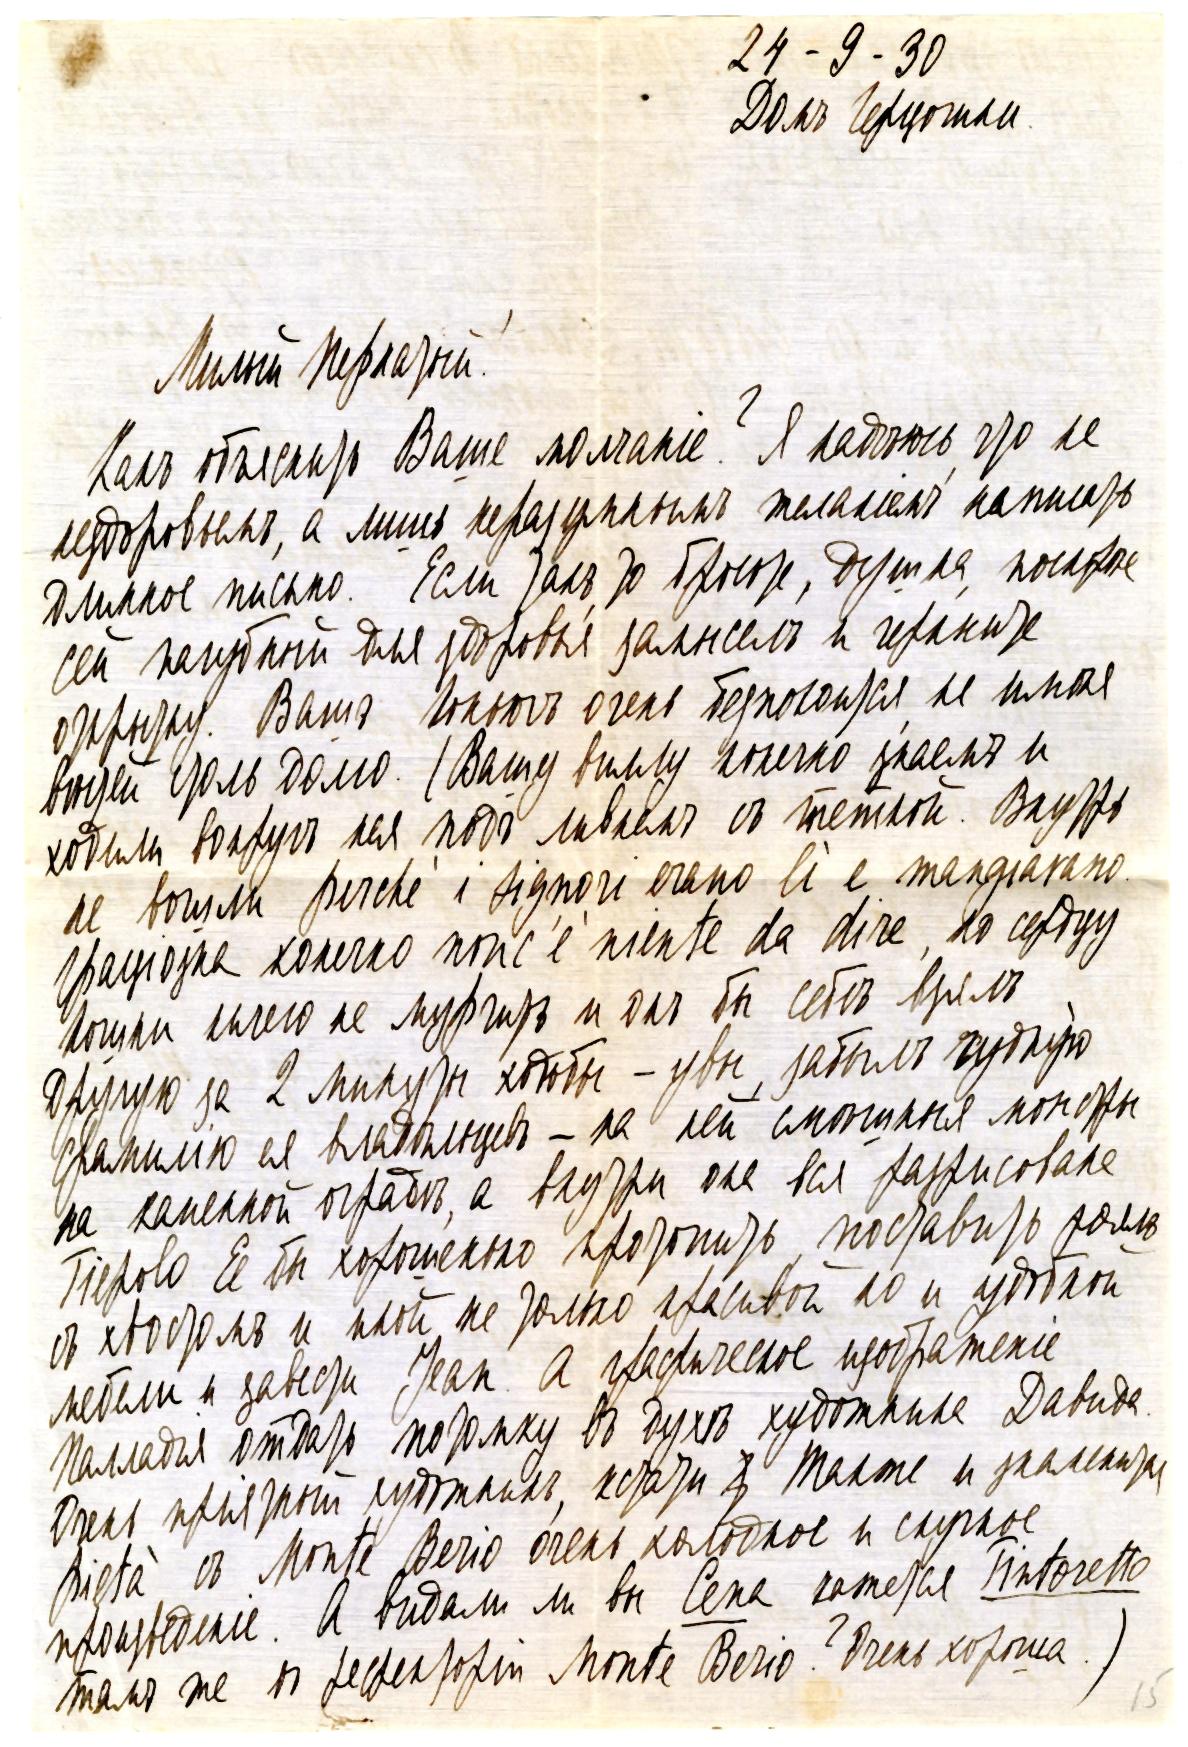 24 - 9 - 30
Домъ Герцогини.
Милый Пернатый!
Какъ объяснить Ваше молчанiе? Я надѣюсь, что не
нездоровьемъ, а лишь неразумнымъ желанiемъ написать
длинное письмо. Если такъ, то бросьте, душка, поскорѣе
сей пагубный для здоровья замыселъ и черкните
открытку. Вашъ очень безпокоится, не имѣя
вѣстей столь долго. (Вашу виллу конечно знаемъ и
ходили вокругъ нея подъ ливнемъ съ теткой. Внутрь
не вошли perchè i signori erano lì e mangiavano.
Грацiозна конечно non c'è niente da dire, но сердцу
Кошки ничего не мурчитъ и онъ бы себѣ взялъ
другую за 2 минуты ходьбы – увы, забылъ чудную
фамилiю ея владѣльцевъ – на ней смѣшныя монстры
на каменной оградѣ, а внутри она вся разрисована
Тieполо Ее бы хорошенько протопить, поставить рояль
съ хвостомъ и иной не только красивой но и удобной
мебели и завести Jean. А графическое изображенiе
Палладiя отдать потомку въ духѣ художника Давида.
Очень прiятный художникъ, кстати Также и знаменитая
pietà съ Monte Berio очень холодное и скучное
произведенiе. А видали ли вы Cena кажется Tintoretto
тамъ же въ рефекторiи Monte Berio? Очень хороша.)
15